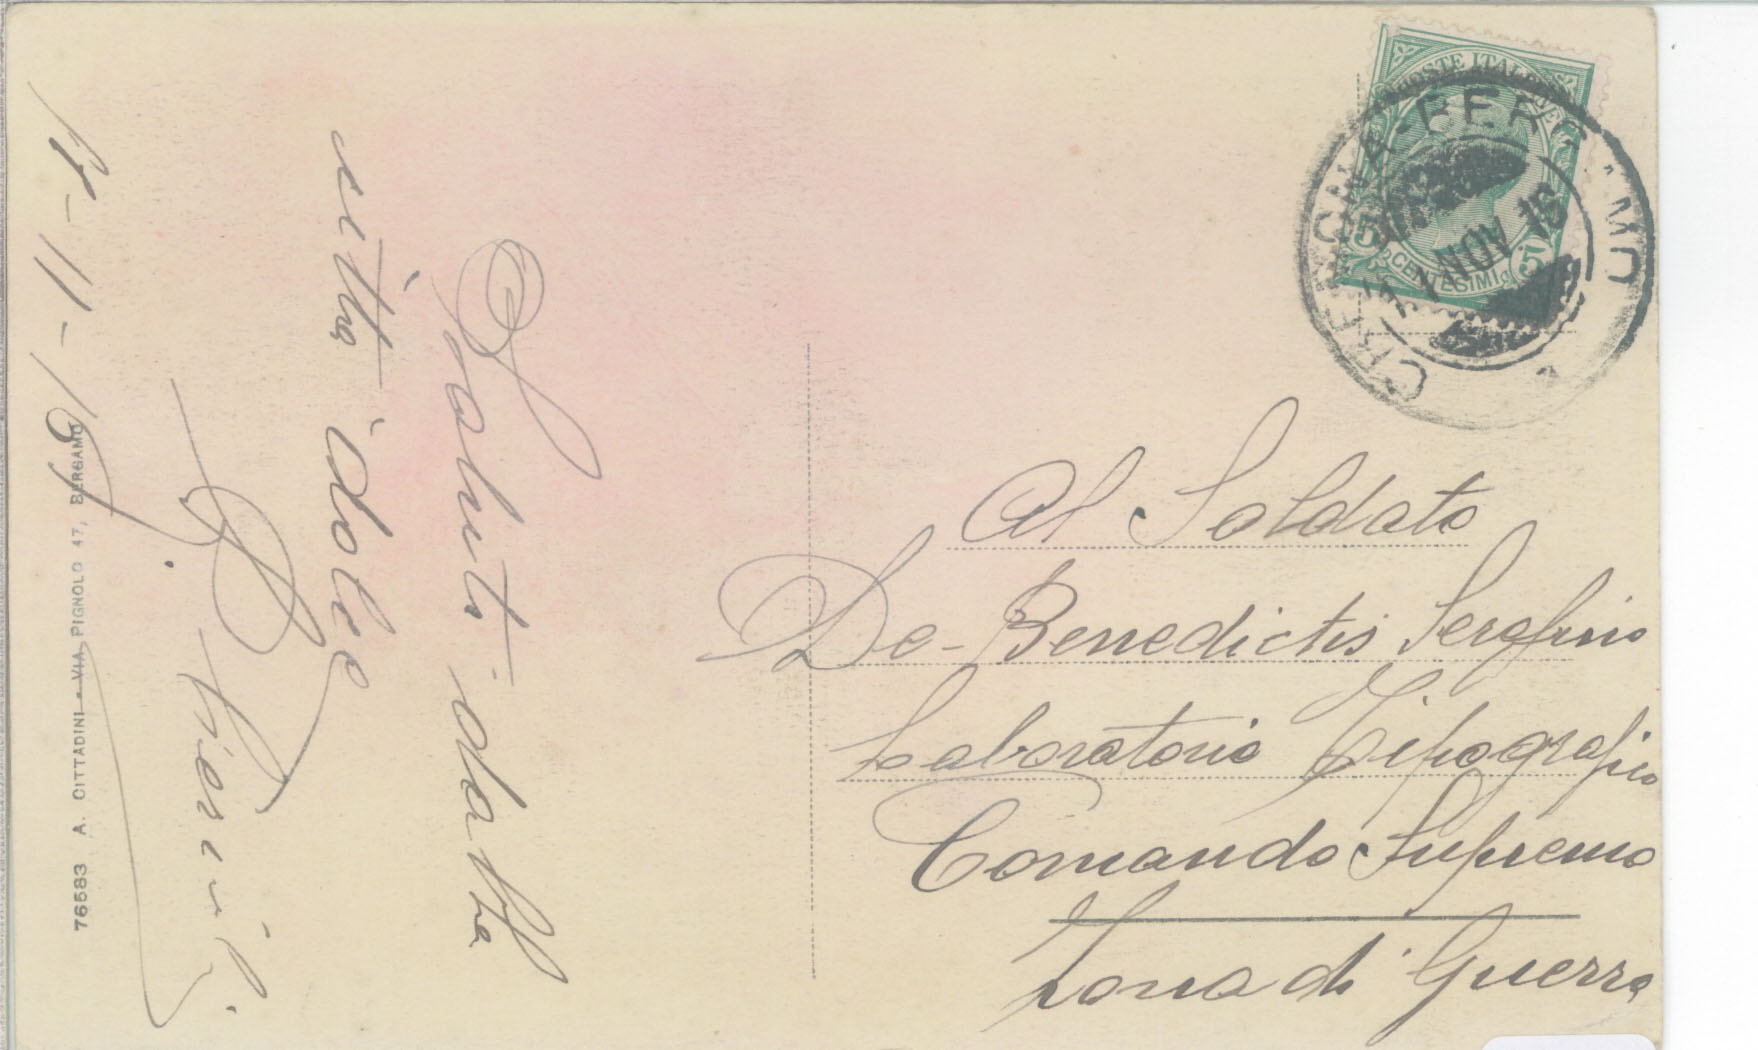 Saluti dalla
città dole
17-11-16
76583 A. CITTADINI - VIA PIGNOLO 47, BERGAMO
POSTE ITALIANE
5 CENTESIMI 5
NOV. 16
Al Soldato
De-Benedictis Serafino
Laboratorio Tipografico
Comando Supremo
Zona di Guerra